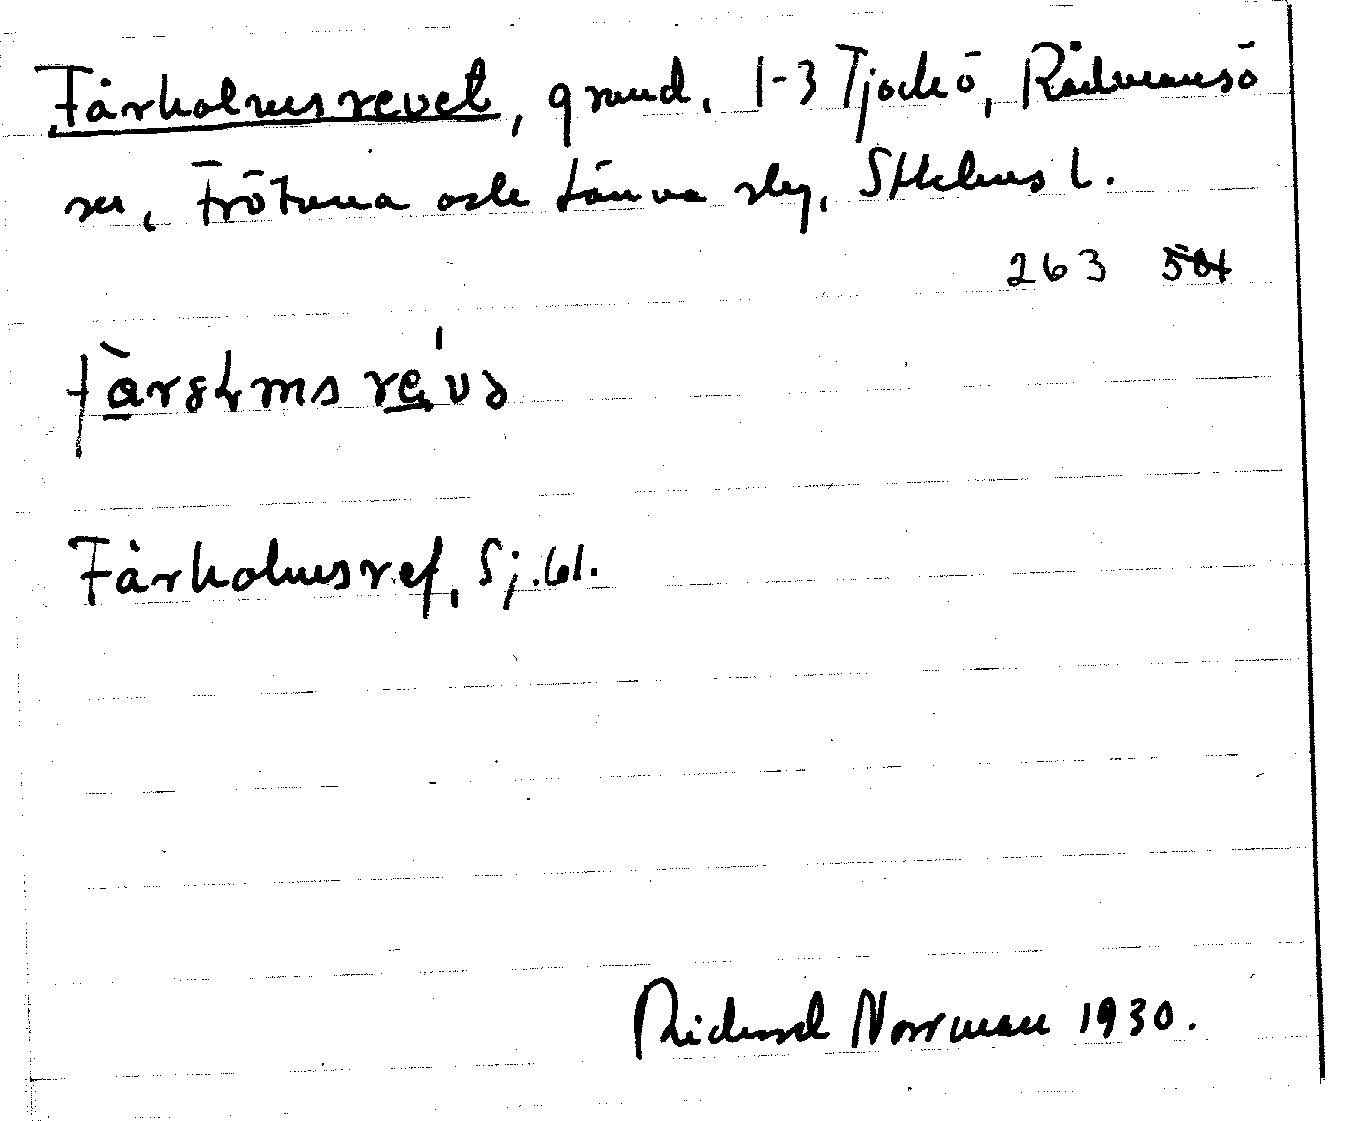 Fårholmsrevet, grund, 1-3 Tjockö, Rådmansö
sn, Frötuna och Länna slg, Sthlms l.
263 504
Fårholmsref, Sj.61.
Richard Norrman 1930.